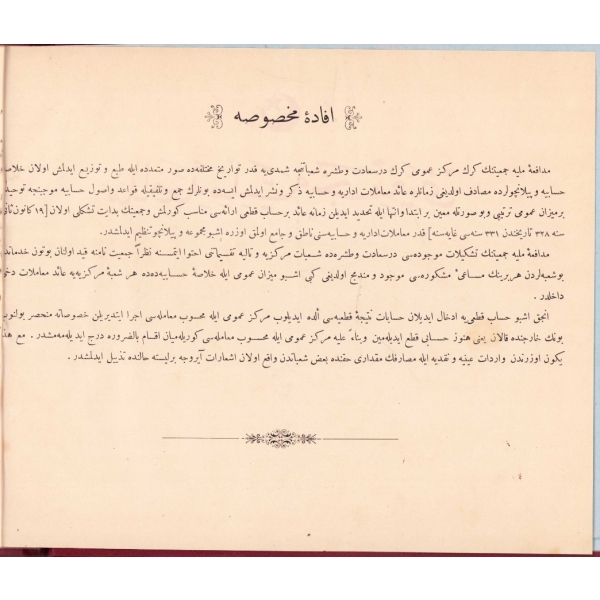 افادهٔ مخصوصه
مدافعهٔ ملیه جمعیتنك كرك مركز عمومی كرك درسعادت وطشره شعباتنجه شمدی‌یه قدر تواریخ مختلفه‌ده صور متعدده ایله طبع و توزیع ایدلمش اولان خلاصهٔ
حسابیه و پیلانچولرده مصادف اولدیغی زمانلره عائد معاملات اداریه و حسابیه ذكر و نشر ایدلمش ایسه‌ده بونلرك جمع و تلفیقیله قواعد واصول حسابیه موجبنجه توحید
بر میزان عمومی ترتیبی وبو صورتله معین بر ابتدا وانتها ایله تحدید ایدیلن زمانه عائد بر حساب قطعی ارائه‌سی مناسب كورلمش وجمعیتك بدایت تشكلی اولان [۱۹ كانون ثانی
سنه ۳۲۸ تاریخندن ۳۳۱ سنه‌سی غایه‌سنه] قدر معاملات اداریه و حسابیه‌سنی ناطق و جامع اولمق اوزره اشبو مجموعه و پیلانچو تنظیم ایدلمشدر.
مدافعهٔ ملیه جمعیتنك تشكیلات موجوده‌سی درسعادت وطشره‌ده شعبات مركزیه و تالیه تقسیماتی احتوا ایتمسنه نظراً جمعیت نامنه قید اولنان بوتون خدماتده
بو شعبه‌لردن هر برینك مساعیٔ مشكوره‌سی موجود و مندمج اولدیغی كبی اشبو میزان عمومی ایله خلاصهٔ حسابیه‌ده‌ده هر شعبهٔ مركزیه‌یه عائد معاملات دخی
داخلدر.
انجق اشبو حساب قطعی‌یه ادخال ایدیلان حسابات نتیجهٔ قطعیه‌سی ألده ایدیلوب مركز عمومی ایله محسوب معامله‌سی اجرا ایتدیریلن خصوصاته منحصر بولنوب
بونك خارجنده قالان یعنی هنوز حسابی قطع ایدیله‌مین وبناءً علیه مركز عمومی ایله محسوب معامله‌سی كورله‌میان اقسام بالضروره درج ایدیله‌مه‌مشدر. مع هذا
یكون اوزرندن واردات عینیه و نقدیه ایله مصارفك مقداری حقنده بعض شعباتدن واقع اولان اشعارات آیروجه بر لیسته حالنده تذییل ایدلمشدر.